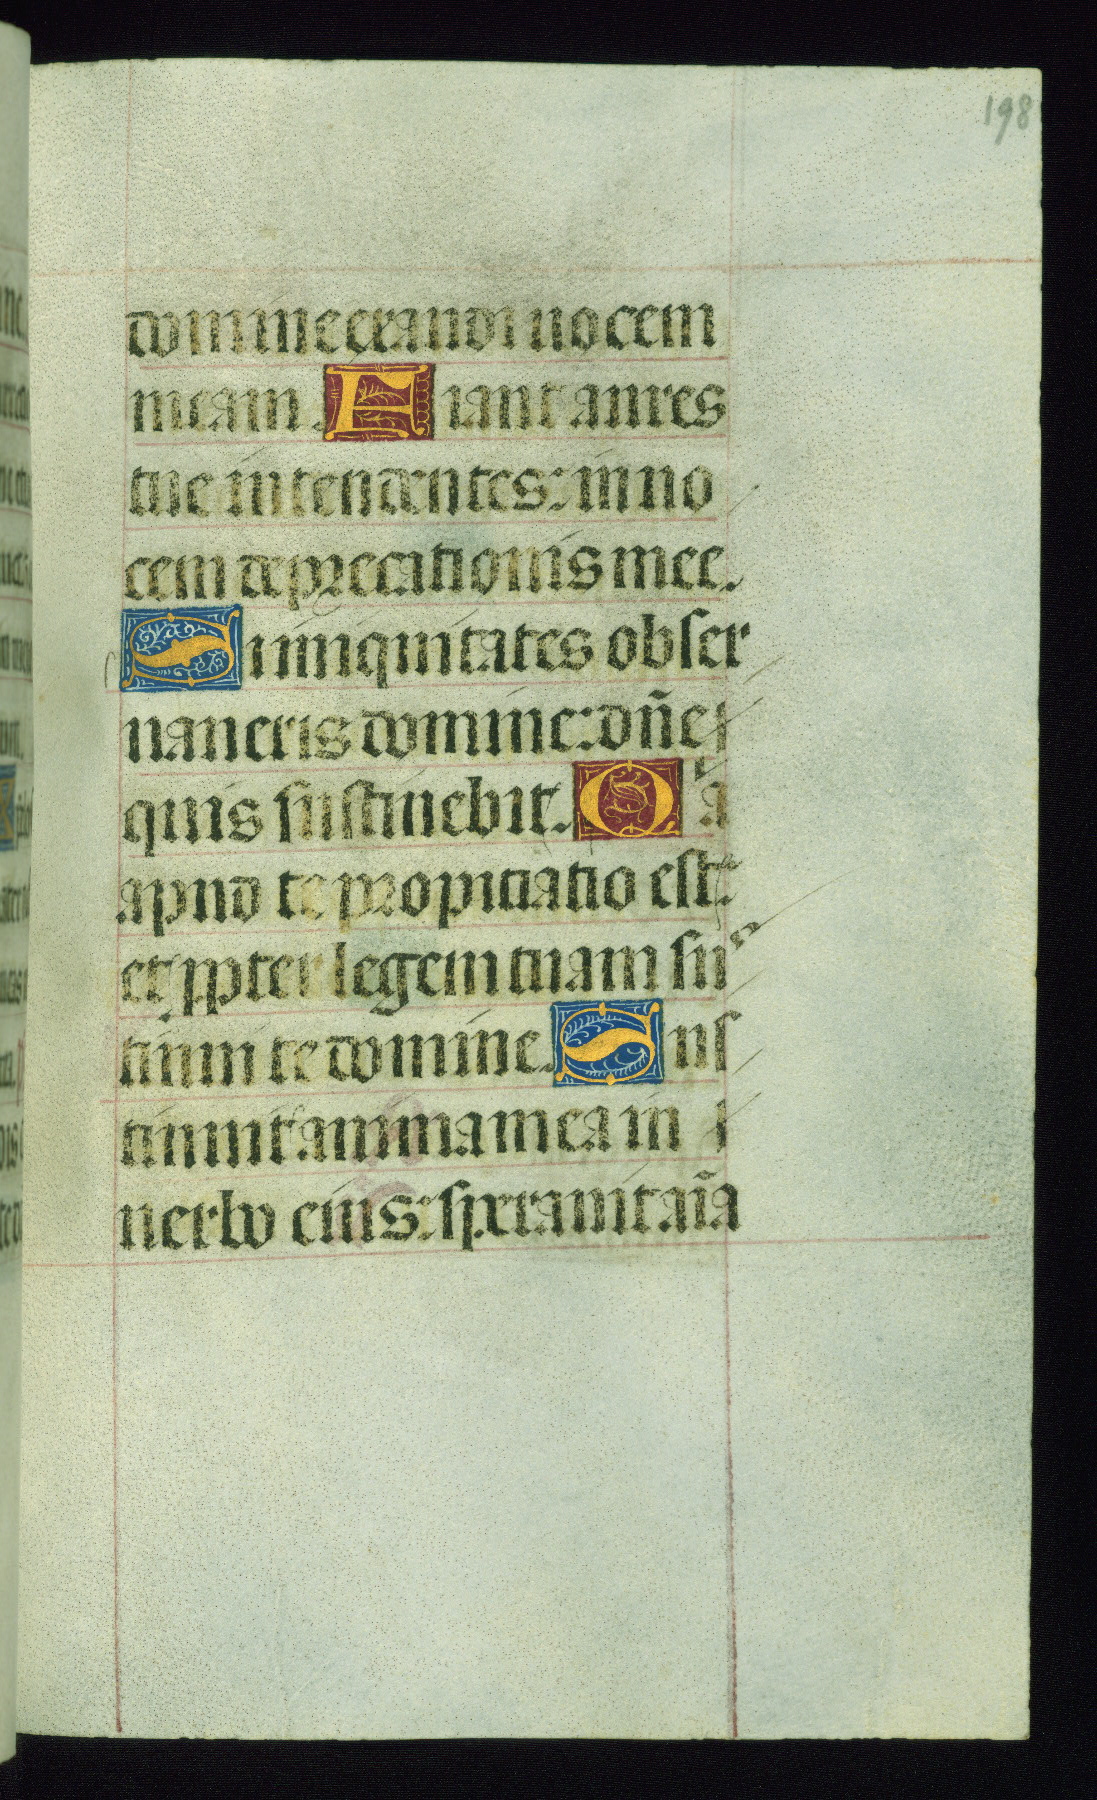 198
domine exaudi uocem
meam. Fiant aures
tue intendentes: in uo
cem deprecationis mee.
Si iniquitates obser
uaueris domine: dñe
quis sustinebit. Q̃a
apud te propitiatio est:
et ꝓpter legem tuam sus
tinui te domine. Sus
tinuit anima mea in
uerbo eius: sperauit aĩa